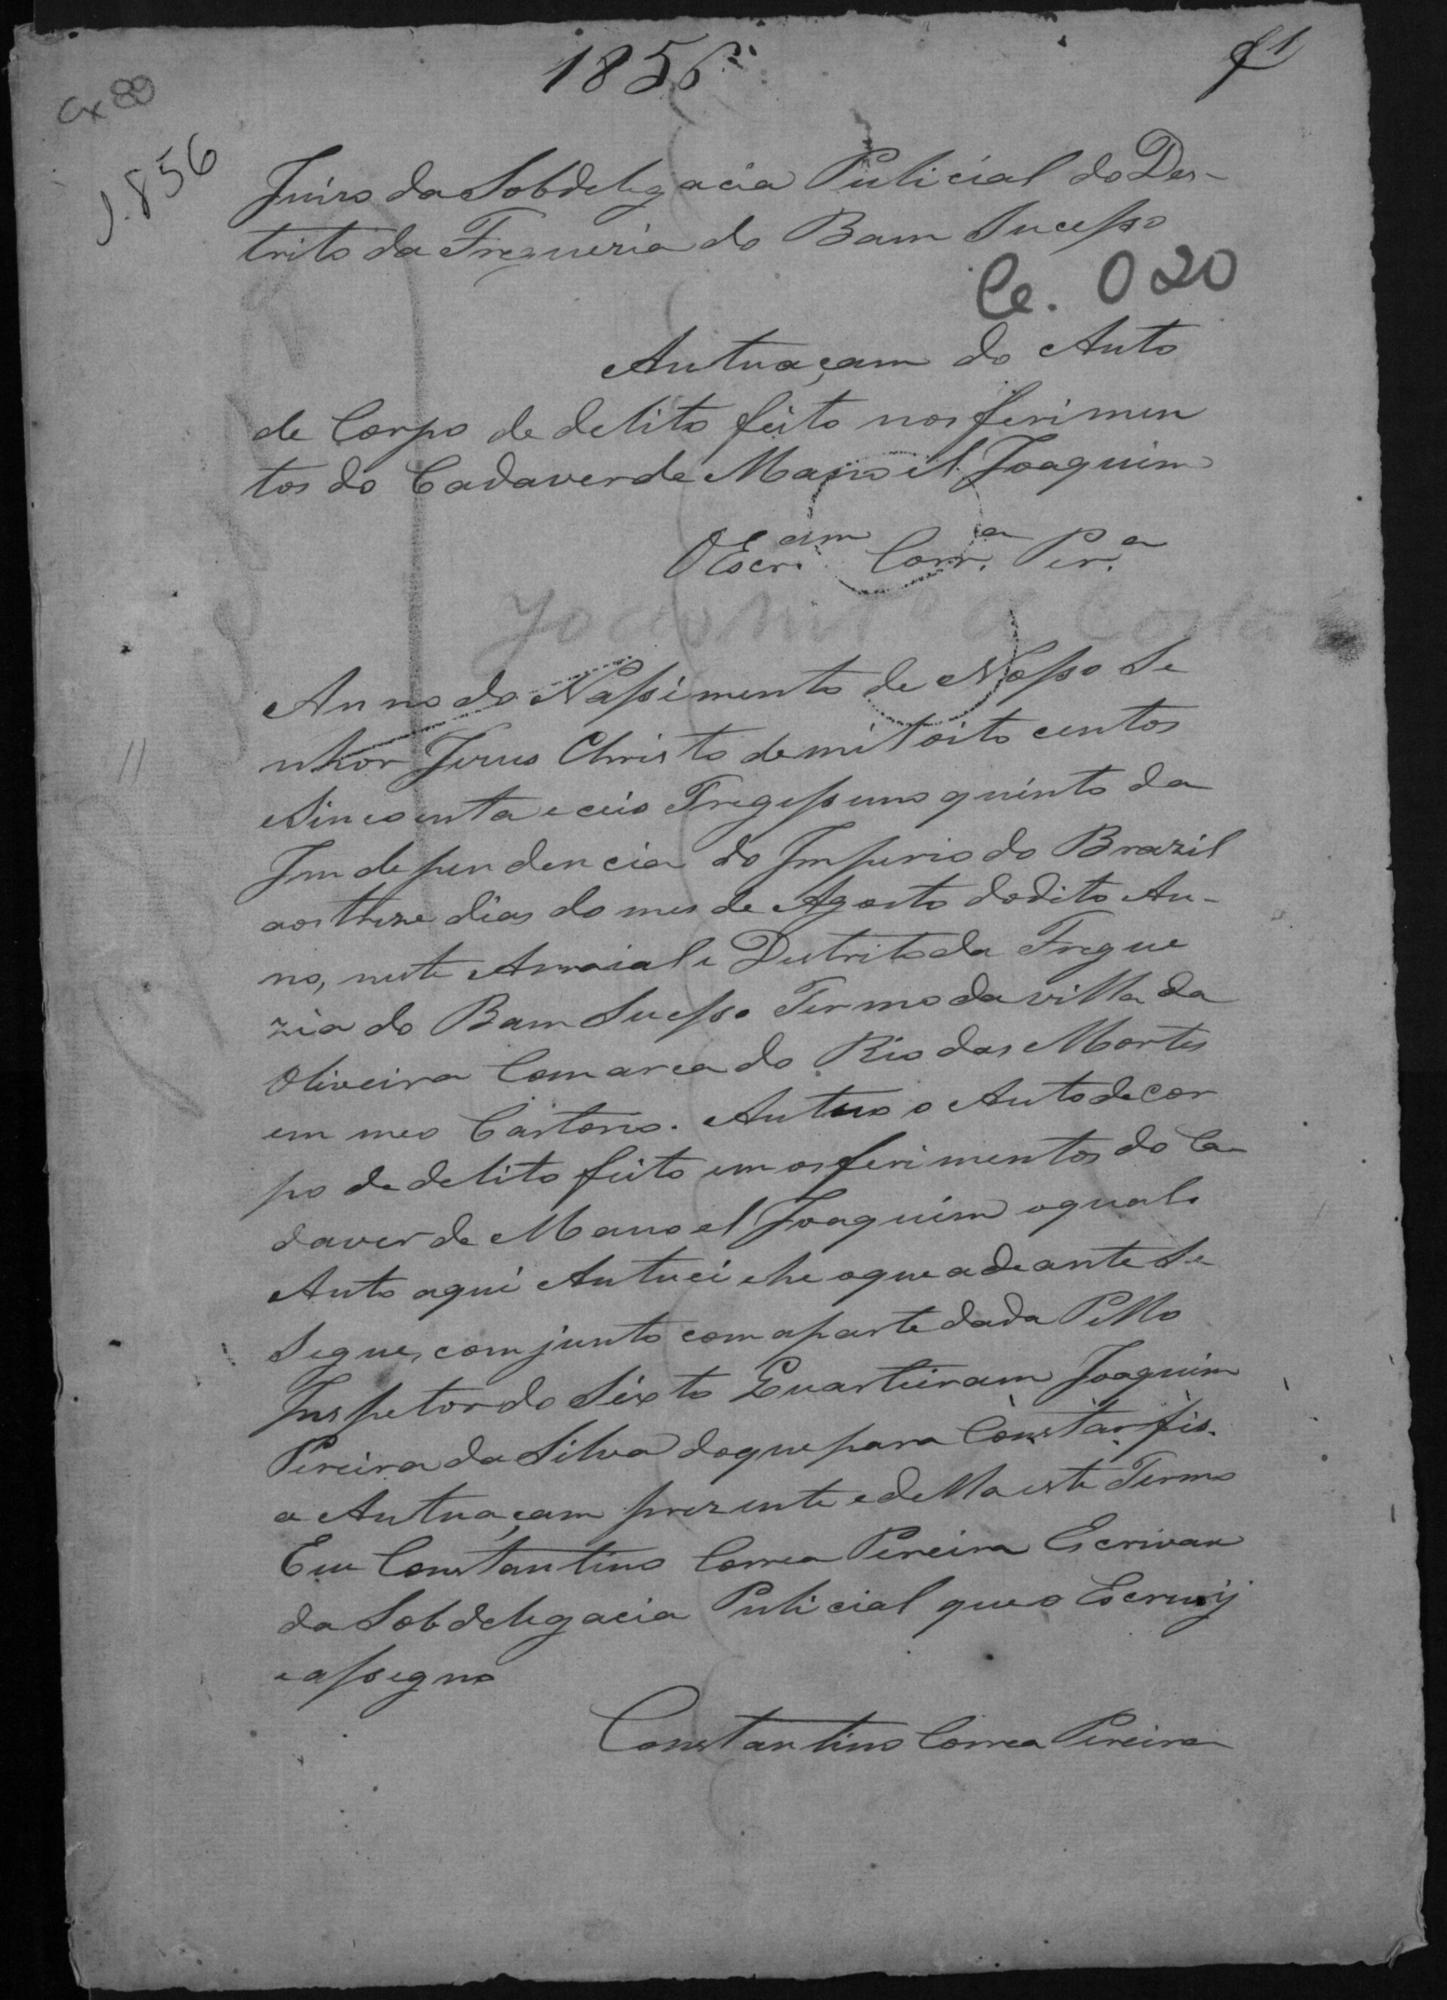 1856
f 1
Cx 89
1.856
Juiso da Sobdelegacia Pulicial do Des-
trito da Fregueria do Bam Sucesso
Ce. 020
Autuaçam do Auto
de Corpo de delito feito nos ferimen
tos do Cadaver de Manoel Joaquim
O Escr.am Corr.a Per.a
Anno do Nassimento de Nosso Se
nhor Jezus Christo de mil oito centos
e Sincoenta e ceis Tregessimo quinto da
Imdependencia do Imperio do Brazil
aos treze dias do mes de Agosto do dito An-
no, neste Arraial e Destrito da Fregue
zia do Bam Sucesso Termo da villa da
Oliveira Comarca do Rio das Mortes
em meo Cartorio. Autuo o Auto de cor
po de delito feito em os ferimentos do Ca
daver de Manoel Joaquim o qual
Auto aqui Autuei e he o que adeante Se
Segue, com junto com a parte dada Pello
Inspetor do Sexto Quarteiram Joaquim
Pereira da Silva do que para Constar fis
a Autuaçam prezente e della este Termo
Eu Constantino Correa Pereira Escrivam
da Sobdelegacia Pulicial que o Escrevij
e assegno
Constantino Correa Pereira